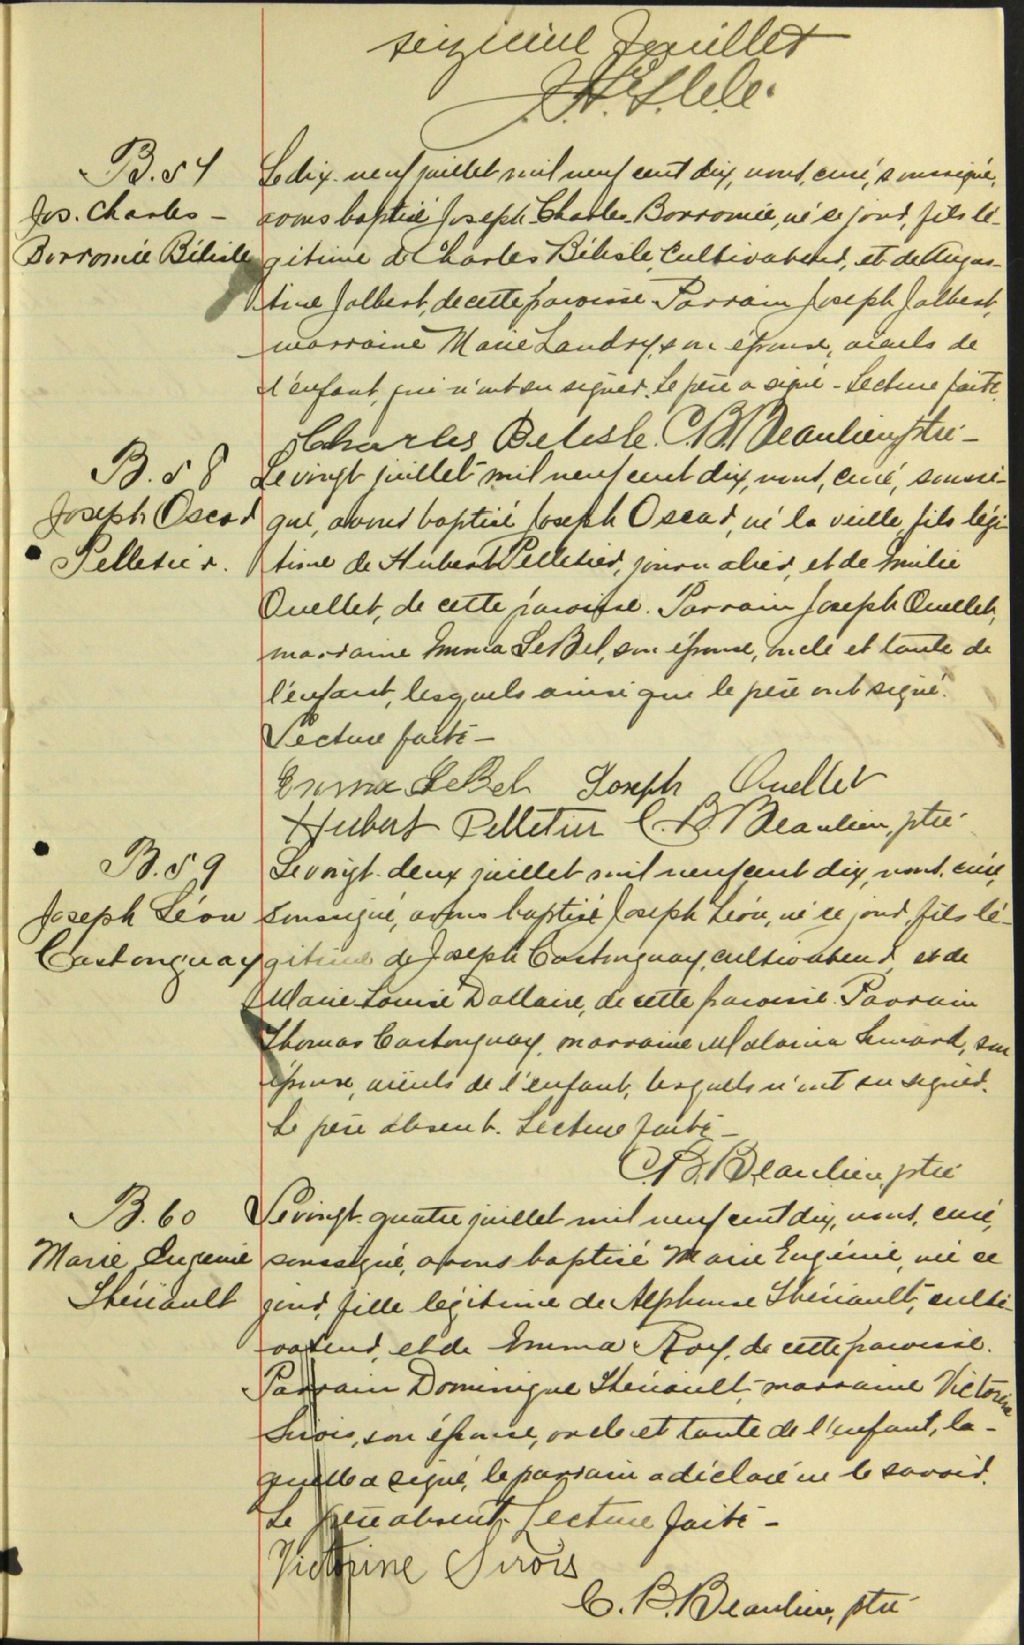 seizième feuillet
B. 57
Jos. Charles -
Borromée Bélisle
Le dix-neuf juillet mil neuf cent dix, nous, curé, soussigné,
avons baptisé Joseph Charles Borromée, né ce jour, fils lé-
gitime de Charles Bélisle, cultivateur, et de Augus-
tine Jalbert, de cette paroisse. Parrain Joseph Jalbert,
marraine Marie Landry, son épouse, aïeuls de
l'enfant, qui n'ont su signer. Le père a signé - Lecture faite.
Charles Belisle. C. B. Beaulieu ptre -
B. 58
Joseph Oscar
Pelletier.
Le vingt juillet mil neuf cent dix, nous, curé, soussi-
gné, avons baptisé Joseph Oscar, né la veille, fils légi-
time de Hubert Pelletier, journalier, et de Emilie
Ouellet, de cette paroisse. Parrain Joseph Ouellet,
marraine Emma LeBel, son épouse, oncle et tante de
l'enfant, lesquels ainsi que le père ont signé.
Lecture faite -
Emma LeBel Joseph Ouellet
Hubert Pelletier C. B. Beaulieu, ptre
B. 59
Joseph Léon
Castonguay
Le vingt-deux juillet mil neuf cent dix, nous, curé,
soussigné, avons baptisé Joseph Léon, né ce jour, fils lé-
gitime de Joseph Castonguay, cultivateur, et de
Marie Louise Dallaire, de cette paroisse. Parrain
Thomas Castonguay, marraine Malvina son
épouse, aïeuls de l'enfant, lesquels n'ont su signer.
Le père absent. Lecture faite -
C. B. Beaulieu, ptre
B. 60
Marie Eugenie
Thériault
Le vingt-quatre juillet mil neuf cent dix, nous, curé,
soussigné, avons baptisé Marie Eugénie, née ce
jour, fille légitime de Alphonse Thériault, culti-
vateur, et de Emma Roy, de cette paroisse.
Parrain Dominique Thériault, marraine Victorine
Sirois, son épouse, oncle et tante de l'enfant, la-
quelle a signé, le parrain a déclaré ne le savoir.
Le père absent - Lecture faite -
Victorine Sirois
C. B. Beaulieu, ptre